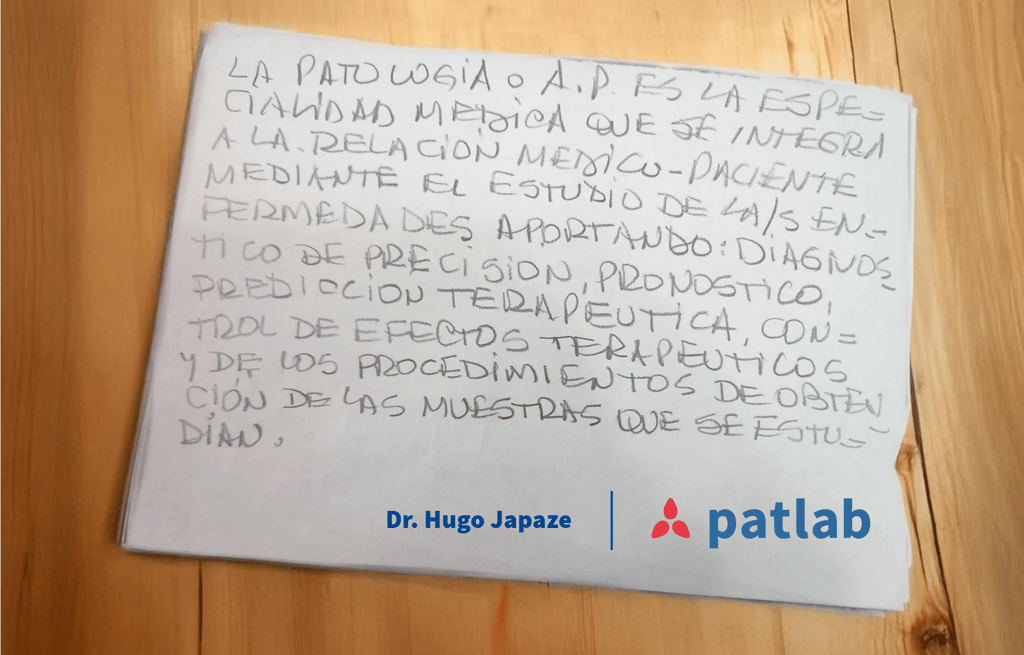 LA PATOLOGÍA O A.P. ES LA ESPE=
CIALIDAD MEDICA QUE SE INTEGRA
A LA RELACIÓN MEDICO-PACIENTE
MEDIANTE EL ESTUDIO DE LA/S EN-
FERMEDADES APORTANDO: DIAGNOS-
TICO DE PRECISIÓN, PRONOSTICO,
PREDICCIÓN TERAPEUTICA, CON=
TROL DE EFECTOS TERAPEUTICOS
Y DE LOS PROCEDIMIENTOS DE OBTEN
CIÓN DE LAS MUESTRAS QUE SE ESTU-
DIAN.
Dr. Hugo Japaze
patlab